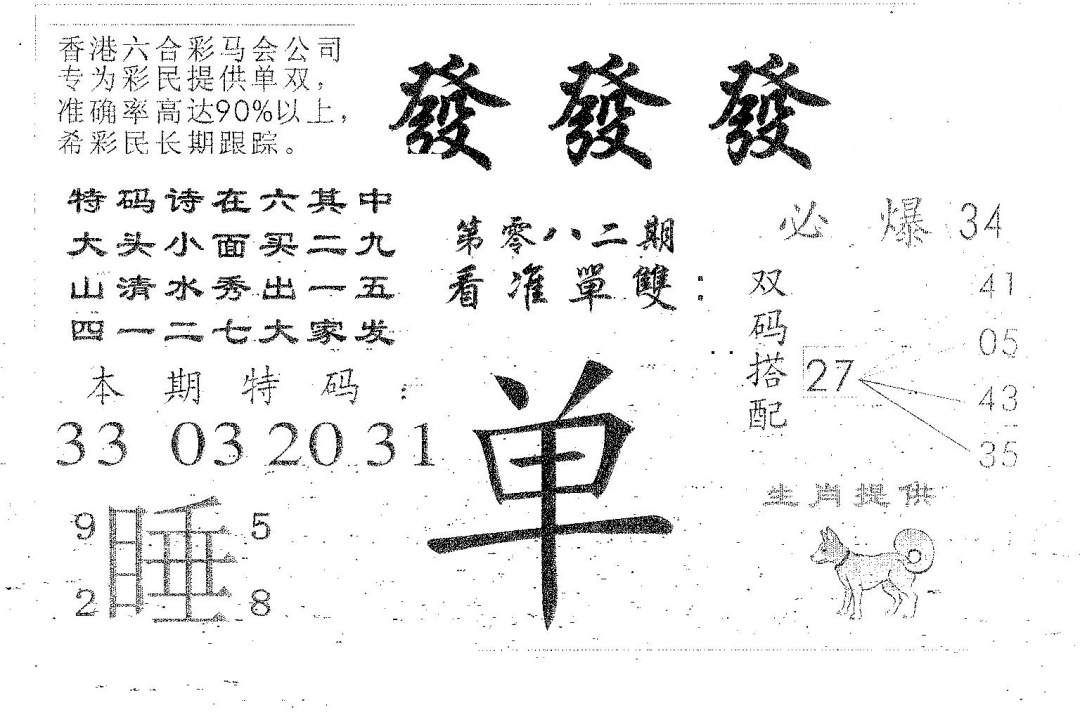 香港六合彩马会公司
专为彩民提供单双，
准确率高达90%以上，
希彩民长期跟踪。
發發發
特码诗在六其中
大头小面买二九
山清水秀出一五
四一二七大家发
第零八二期
看准單雙：
单
本期特码：
33 03 20 31
9 5
睡
2 8
必爆34
双码搭配
27
41
05
43
35
生肖提供